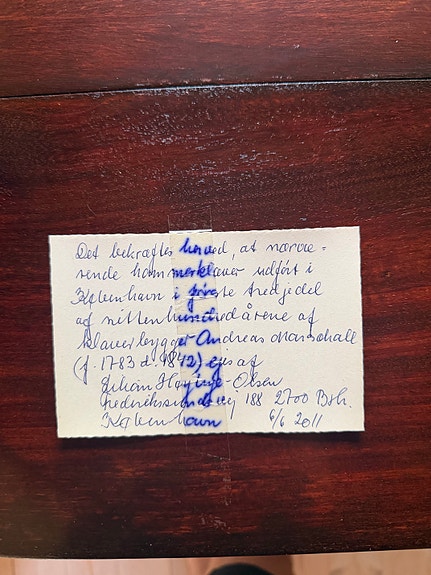 Det bekræftes herved, at nærvæ=
rende hammerklaver udført i
København i første tredjedel
af nittenhundredårene af
klaverbygger Andreas Marschall
(f. 1783 d. 1842) ejes af
Johan Olsen
Frederikssundsvej 188 2700 Brh.
København 6/6 2011